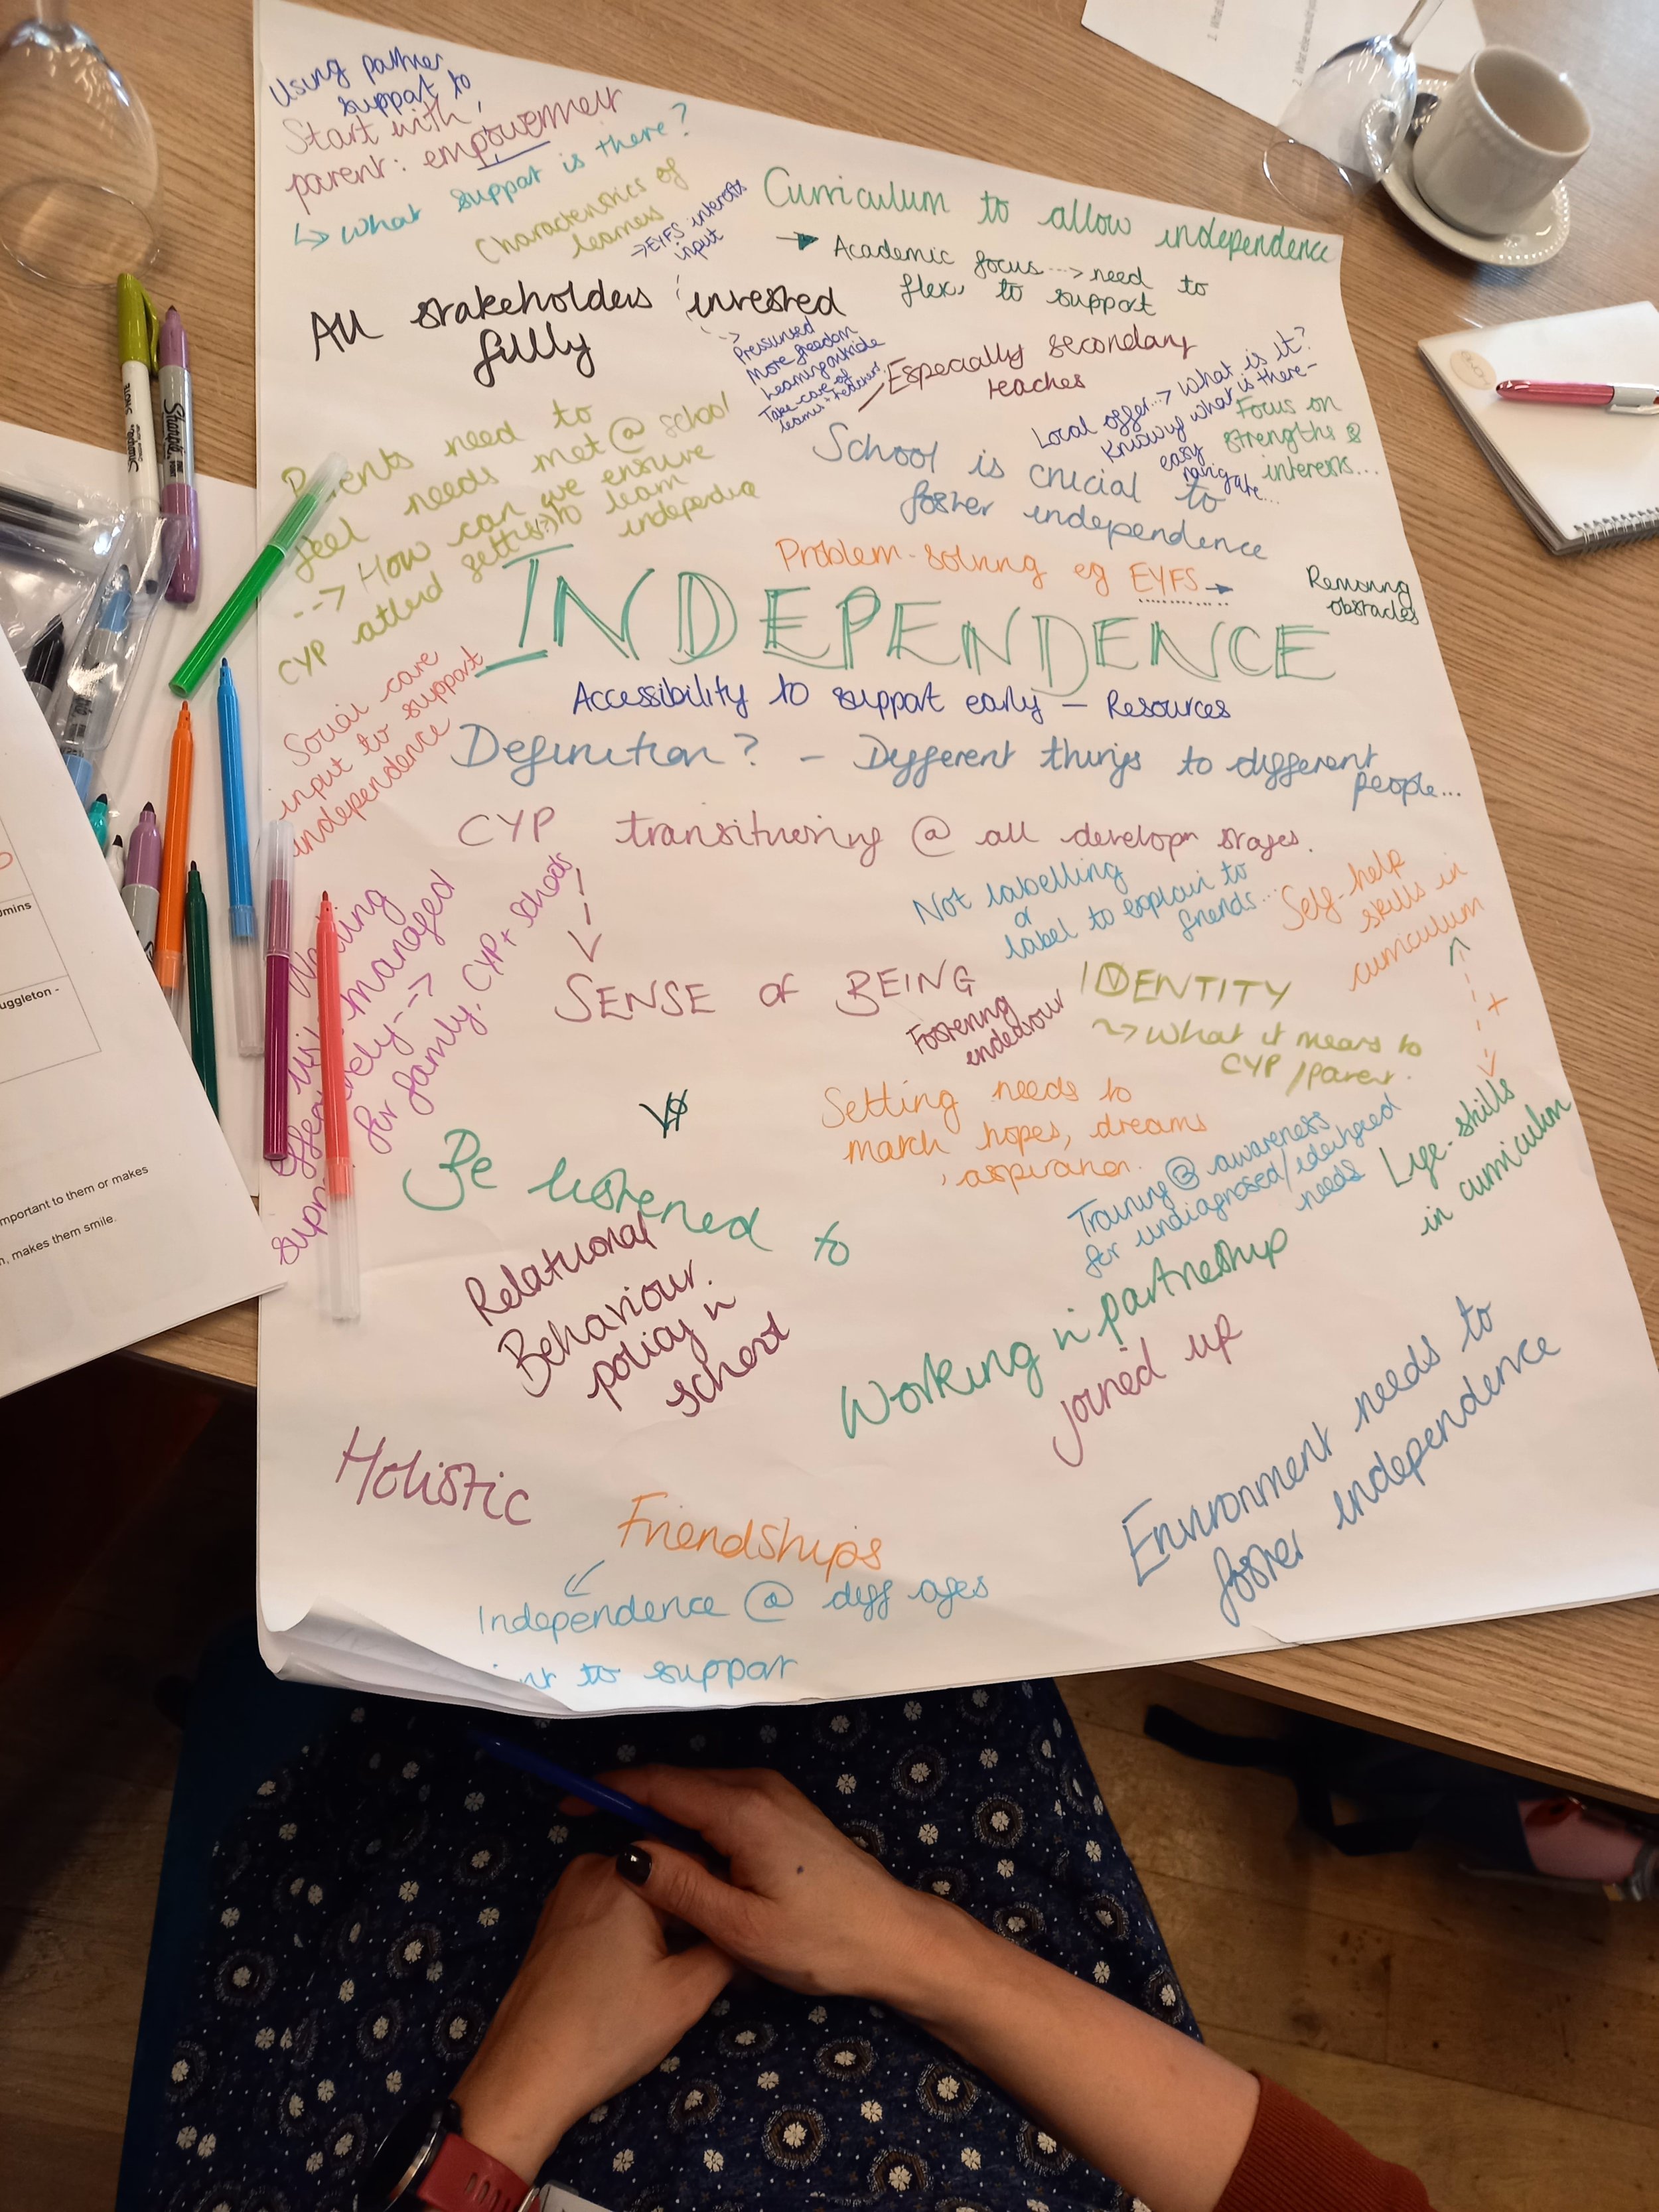 Using partner
support to
Start with,
parent: empowerment
↳ What support is there?
Characteristics of
learners
→ EYFS interests
input
Curriculum to allow independence
→ Academic focus ---> need to
flex, to support
All stakeholders invested
fully
-->
Pressurised
More freedom
Learning outside
Take care of
Especially secondary
teaches
Local offer --> What is it?
Knowing what is there-
easy
navigate...
Focus on
strengths &
interests...
Parents need to
feel needs met @ school
--> How can we ensure
CYP attend
to learn
School is crucial to
foster independence
Problem-solving eg EYFS →
Removing
obstacles
INDEPENDENCE
Accessibility to support early - Resources
Social care
input to support
independence
Definition? - Different things to different
people...
CYP transitioning @ all developm stages.
Not labelling
or
label to explain to
friends...
Self-help
skills in
curriculum
managed
-->
for family, CYP + schools
SENSE OF BEING
Fostering
endeavour
IDENTITY
~> What it means to
CYP / parent.
+
Setting needs to
match hopes, dreams
, aspiration.
Life-skills
in curriculum
Training @ awareness
for undiagnosed/identified
needs
Be listened to
Relational
Behaviour.
policy in
school
Working in partnership
joined up
Environment needs to
foster independence
Holistic
Friendships
Independence @ diff ages
to support
Sharpie
mins
uggleton -
mportant to them or makes
n, makes them smile.